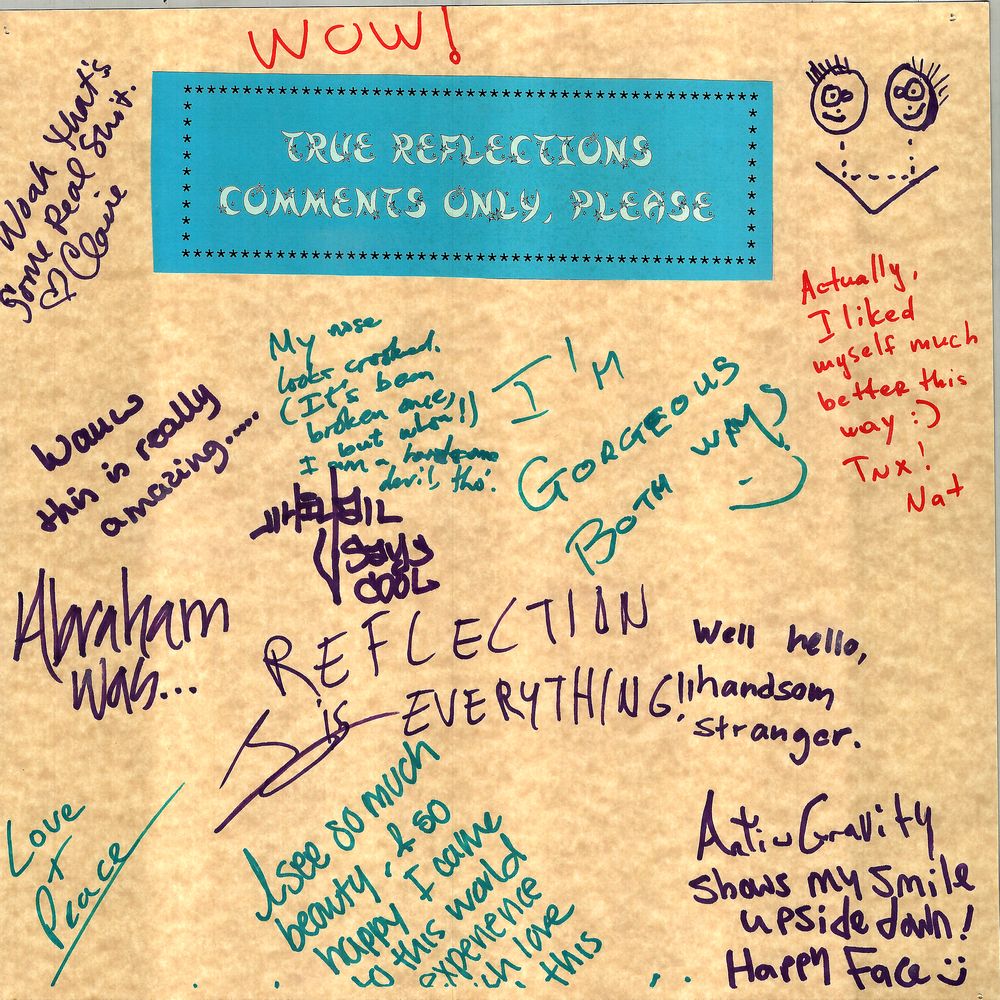 WOW!
TRUE REFLECTIONS
COMMENTS ONLY, PLEASE
Woah that's
Some Real Shit.
♡ Claire
Actually,
I liked
myself much
better this
way :)
Tnx!
Nat
My nose
looks crooked.
(It's been
broken once,
but whoa!!)
I am a handsome
devil, tho'.
I'M
GORGEOUS
BOTH WAYS
Wauw
this is really
amazing.....
says
COOL
Abraham
was...
REFLECTION
is EVERYTHING!!
Well hello,
handsom
stranger.
Love
+
Peace
I see so much
beauty, & so
happy I came
to this world
experience
love
this
Anti-Gravity
shows my smile
upside down!
Happy Face